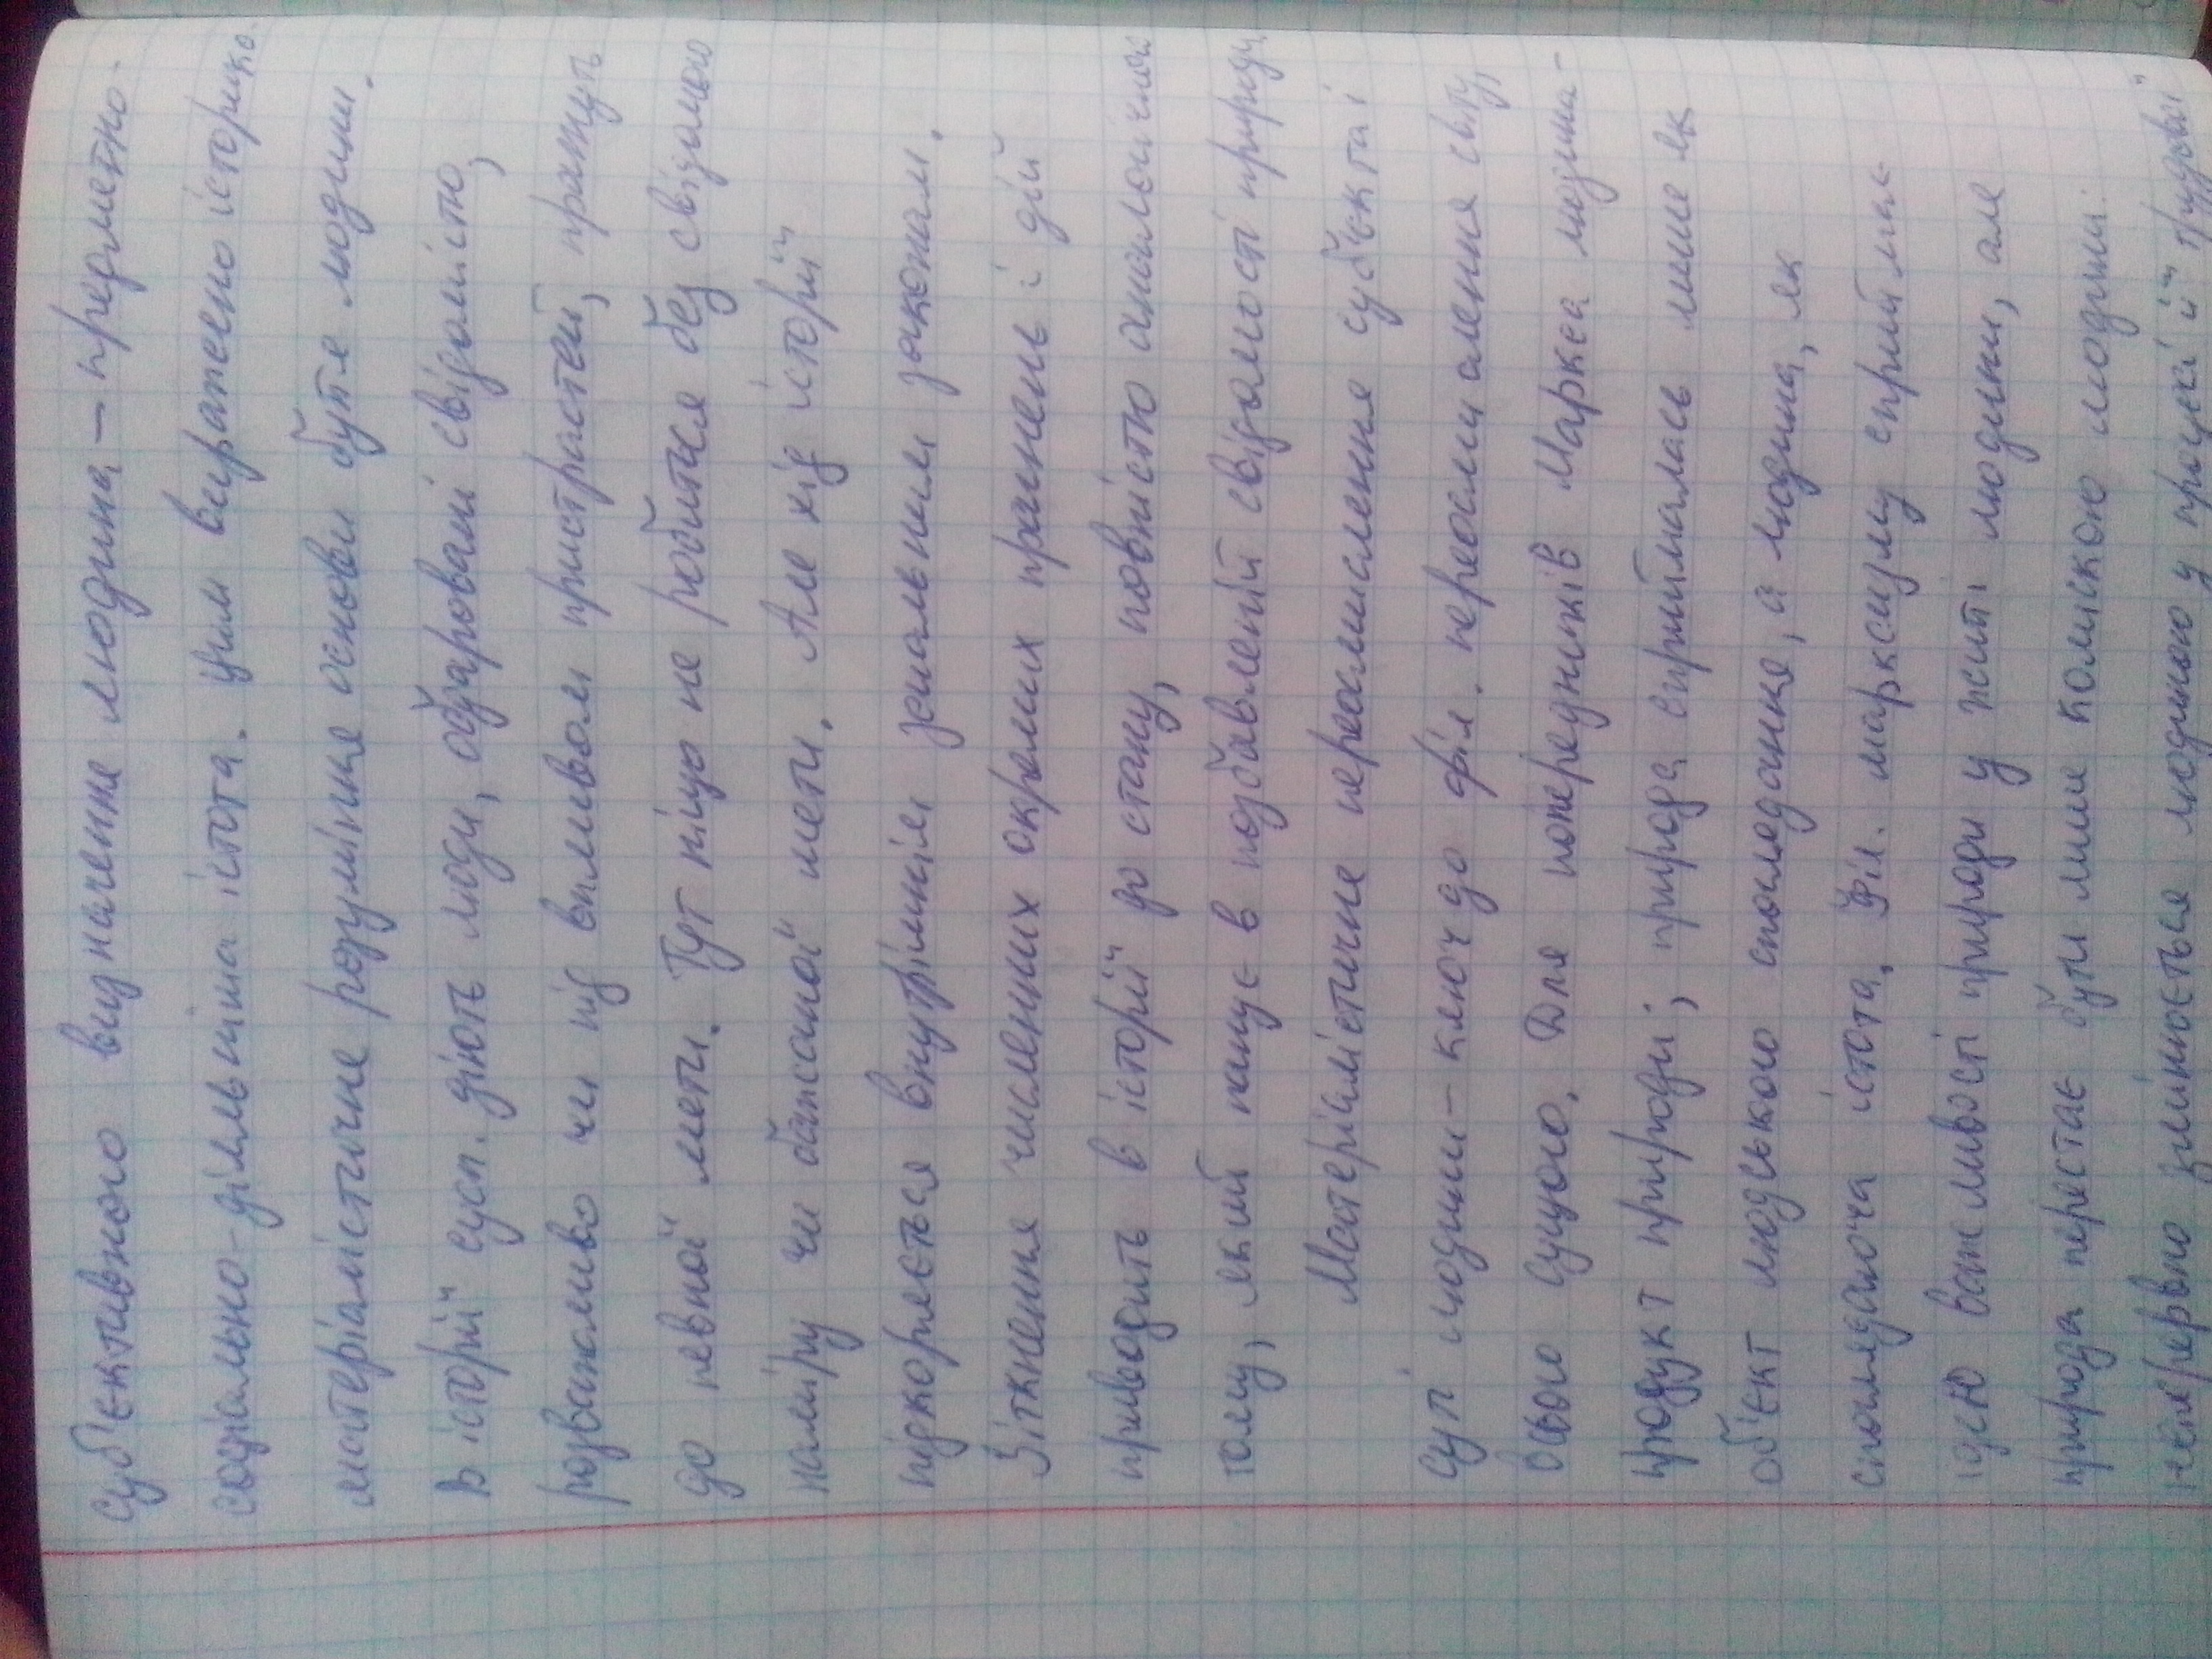 суб'єктивного визначення людина – предметно-
соціально-діяльнісна істота. Цим виражено історико
матеріалістичне розуміння основи буття людини.
В історії сусп. діють люди, обдаровані свідомістю,
розважливо чи під впливом пристрастей, прагнуть
до певної мети. Тут ніщо не робиться без свідомого
наміру чи бажаної мети. Але хід історії
підкоряється внутрішнім загальним законам.
Зіткнення численних окремих прагнень і дій
приводить в історії до стану, повністю аналогічного
тому, який панує в позбавленій свідомості природі
Матеріалістичне переосмислення суб'єкта і
суті людини – ключ до філ. переосмислення світу,
всього сущого. Для попередників Маркса людина -
продукт природи; природа сприймалась лише як
об'єкт людського споглядання, а людина, як
споглядаюча істота. Філ. марксизму сприймає
ідею важливості природи у житті людини, але
природа перестає бути лише колискою людини.
неперервно змінюється людиною у процесі її трудової